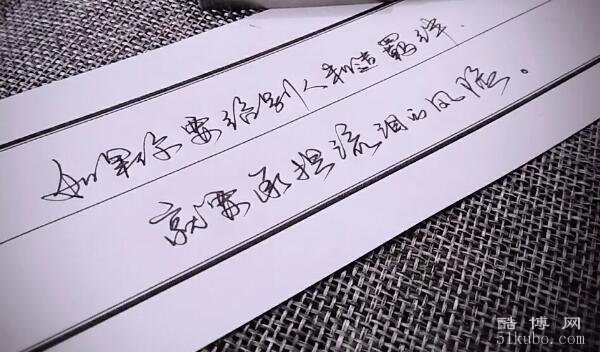 如果你要给别人制造羁绊.
就要承担流泪的风险。
酷博网
51kubo.com